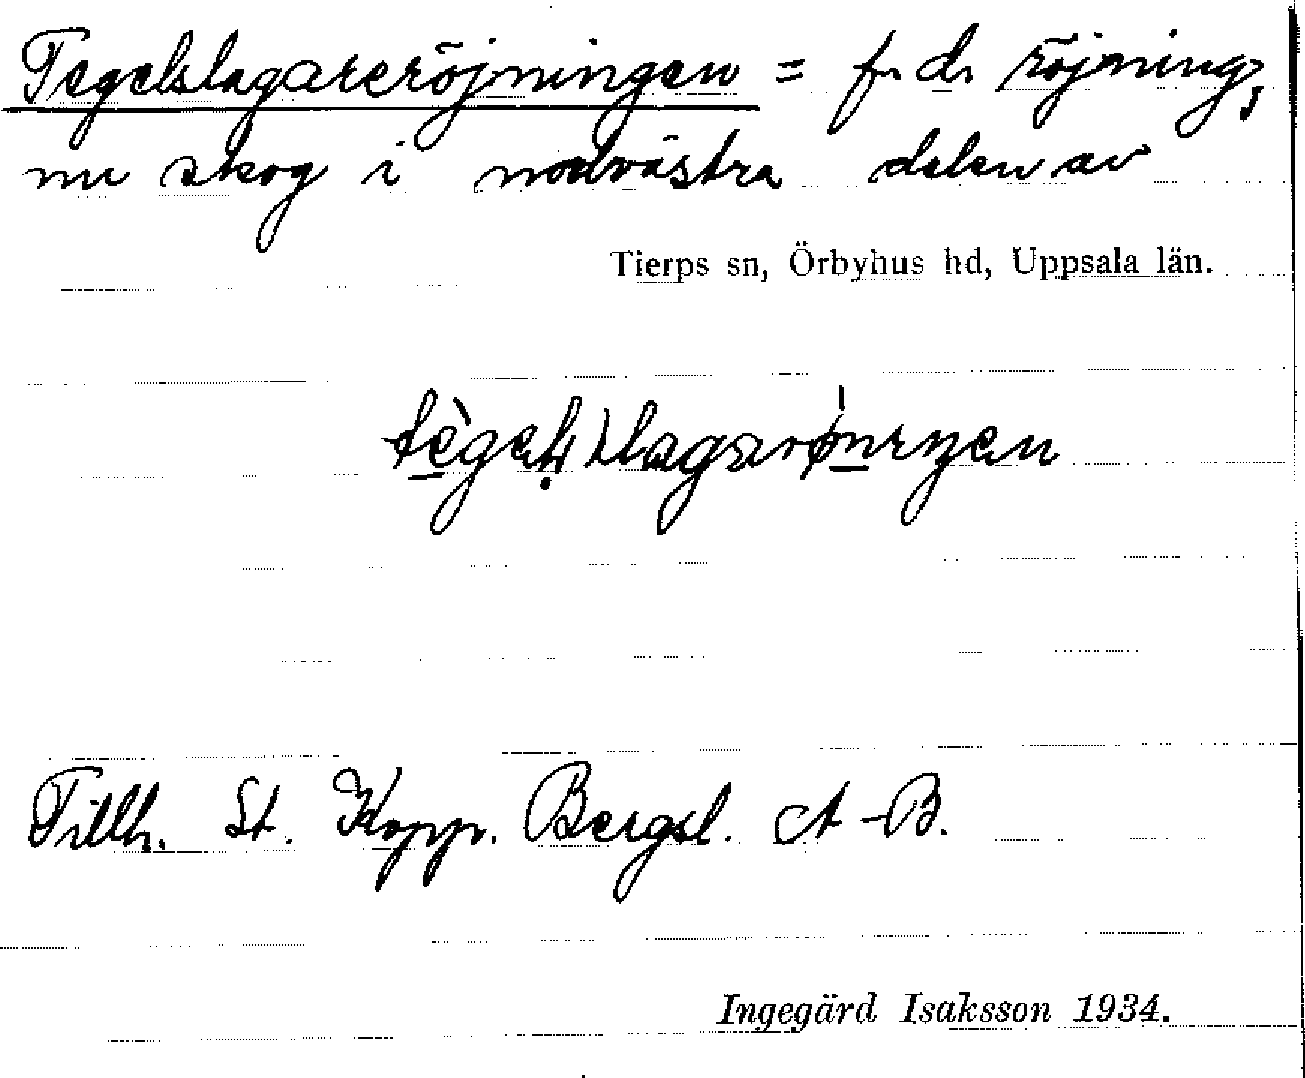 Tegelslagareröjningen = f. d. röjning,
nu skog i nordvästra delen av
Tierps sn, Örbyhus hd, Uppsala län.
Tillh. St. Kopp. Bergsl. A-B.
Ingegärd Isaksson 1934.